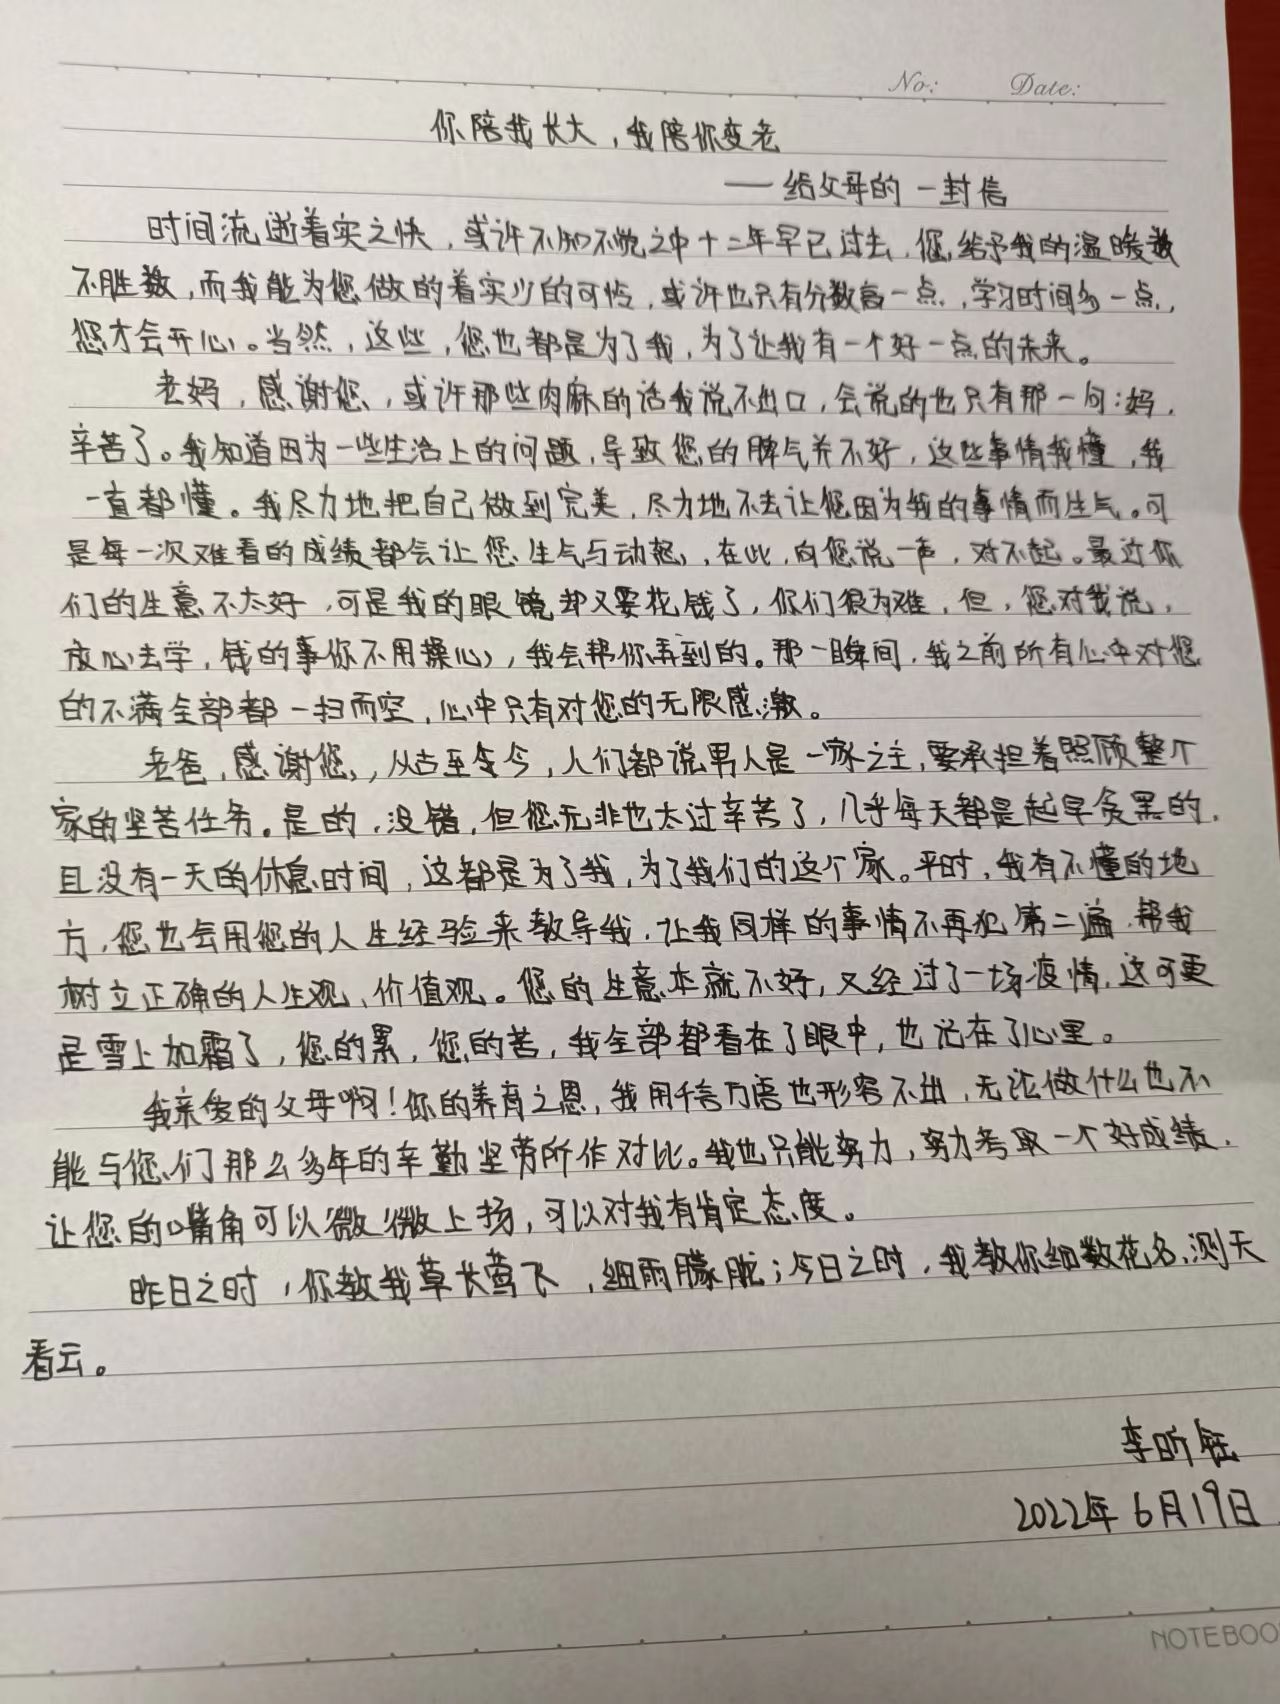 No: Date:
你陪我长大，我陪你变老
——给父母的一封信
时间流逝着实之快，或许不知不觉之中十二年早已过去，您给予我的温暖数
不胜数，而我能为您做的着实少的可怜，或许也只有分数高一点，学习时间多一点，
您才会开心。当然，这些，您也都是为了我，为了让我有一个好一点的未来。
老妈，感谢您，或许那些肉麻的话我说不出口，会说的也只有那一句：妈，
辛苦了。我知道因为一些生活上的问题，导致您的脾气并不好，这些事情我懂，我
一直都懂。我尽力地把自己做到完美，尽力地不去让您因为我的事情而生气。可
是每一次难看的成绩都会让您生气与动怒，在此，向您说一声，对不起。最近你
们的生意不太好，可是我的眼镜却又要花钱了，你们很为难，但，您对我说，
放心去学，钱的事你不用操心，我会帮你弄到的。那一瞬间，我之前所有心中对您
的不满全部都一扫而空，心中只有对您的无限感激。
老爸，感谢您，从古至今，人们都说男人是一家之主，要承担着照顾整个
家的坚苦任务。是的，没错，但您无非也太过辛苦了，几乎每天都是起早贪黑的，
且没有一天的休息时间，这都是为了我，为了我们的这个家。平时，我有不懂的地
方，您也会用您的人生经验来教导我，让我同样的事情不再犯第二遍，帮我
树立正确的人生观、价值观。您的生意本就不好，又经过了一场疫情，这可更
是雪上加霜了，您的累，您的苦，我全部都看在了眼中，也记在了心里。
我亲爱的父母啊！你的养育之恩，我用千言万语也形容不出，无论做什么也不
能与您们那么多年的辛勤坚劳所作对比。我也只能努力，努力考取一个好成绩，
让您的嘴角可以微微上扬，可以对我有肯定态度。
昨日之时，你教我草长莺飞，细雨朦胧；今日之时，我教你细数花名，测天
看云。
李昕钰
2022年6月19日
NOTEBOO